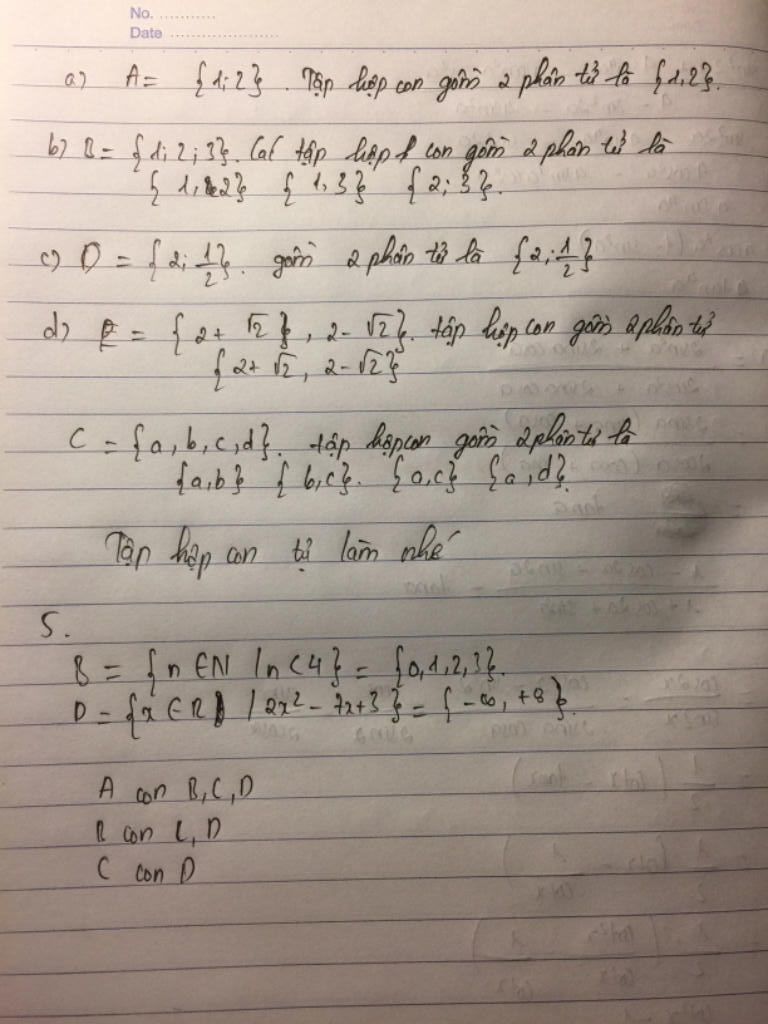 No. ............
Date ......................
a) A = {1; 2}. Tập hợp con gồm 2 phần tử là {1, 2}.
b) B = {1; 2; 3}. Các tập hợp con gồm 2 phần tử là
{1, 2} {1, 3} {2; 3}.
c) D = {2; 1/2}. gồm 2 phần tử là {2; 1/2}
d) E = {2 + √2}, 2 - √2}. tập hợp con gồm 2 phần tử
{2 + √2, 2 - √2}
C = {a, b, c, d}. tập hợp con gồm 2 phần tử là
{a, b} {b, c}. {a, c} {a, d}.
Tập hợp con tự làm nhé
5.
B = {n ∈ N | n < 4} = {0, 1, 2, 3}.
D = {x ∈ R | 2x² - 7x + 3} = {-∞, +∞}.
A con B, C, D
B con C, D
C con D